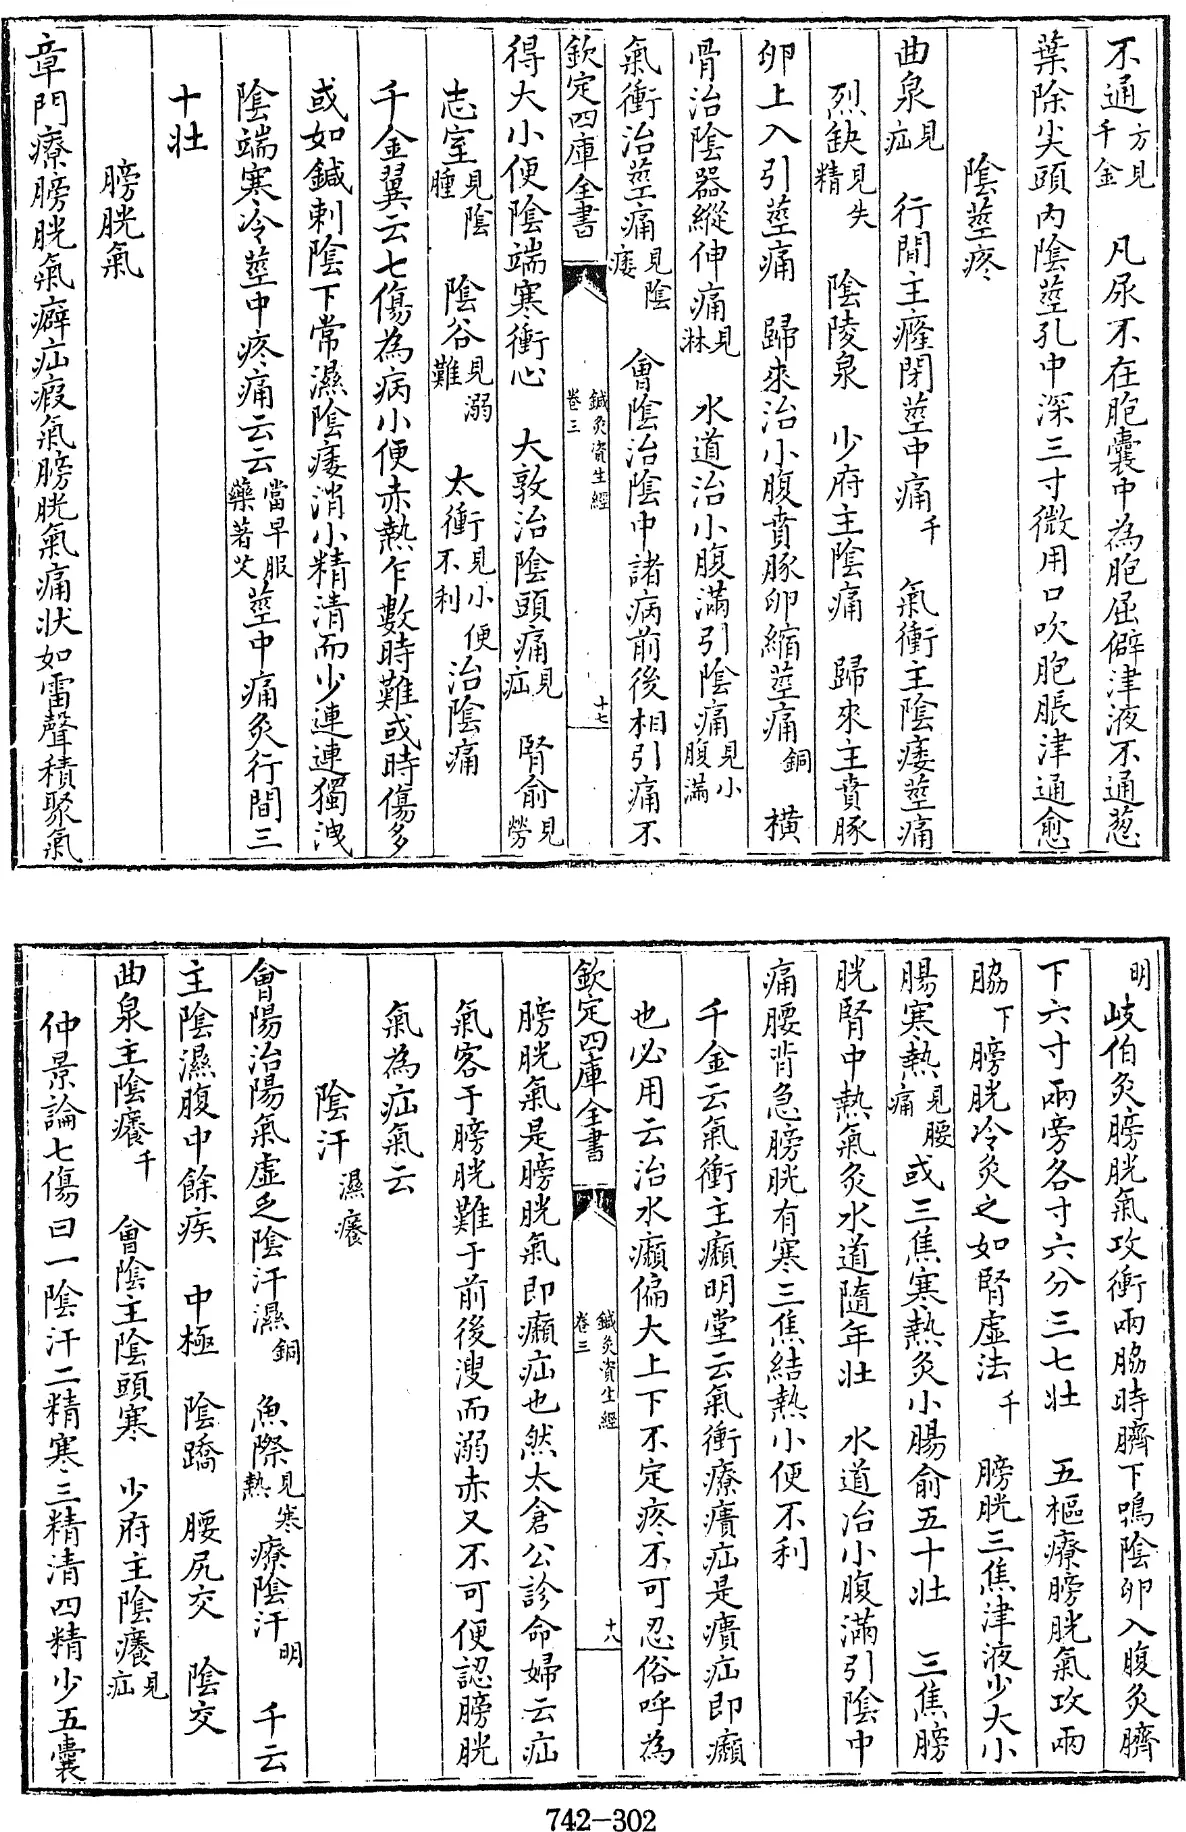 不通方見千金　凡尿不在胞囊中為胞屈僻津液不通葱
葉除尖頭内陰莖孔中深三寸微用口吹胞脹津通愈
陰莖疼
曲泉見疝　行間主癃閉莖中痛千　氣衝主陰痿莖痛
烈缺見失精　陰陵泉　少府主陰痛　歸來主賁豚
卵上入引莖痛　歸來治小腹賁豚卵縮莖痛銅　横
骨治陰器縱伸痛見淋　水道治小腹滿引陰痛見小腹滿
氣衝治莖痛見陰痿　會陰治陰中諸病前後相引痛不
欽定四庫全書　鍼灸資生經卷三　十七
得大小便陰端寒衝心　大敦治陰頭痛見疝　腎俞見勞
志室見陰腫　陰谷見溺難　太衝見小便不利治陰痛
千金翼云七傷為病小便赤熱乍數時難或時傷多
或如鍼刺陰下常濕陰痿消小精清而少連連獨洩
陰端寒冷莖中疼痛云云當早服藥著艾莖中痛灸行間三
十壯
膀胱氣
章門療膀胱氣癖疝瘕氣膀胱氣痛狀如雷聲積聚氣
明岐伯灸膀胱氣攻衝兩脇時臍下鳴陰卵入腹灸臍
下六寸兩旁各寸六分三七壯　五樞療膀胱氣攻兩
脇下　膀胱冷灸之如腎虛法千　膀胱三焦津液少大小
腸寒熱見腰痛或三焦寒熱灸小腸俞五十壯　三焦膀
胱腎中熱氣灸水道隨年壯　水道治小腹滿引陰中
痛腰背急膀胱有寒三焦結熱小便不利
千金云氣衝主癩明堂云氣衝療㿉疝是㿉疝即癩
也必用云治水癩偏大上下不定疼不可忍俗呼為
欽定四庫全書　鍼灸資生經卷三　十八
膀胱氣是膀胱氣即癩疝也然太倉公診命婦云疝
氣客于膀胱難于前後溲而溺赤又不可便認膀胱
氣為疝氣云
陰汗濕癢
會陽治陽氣虛乏陰汗濕銅　魚際見寒熱療陰汗明　千云
主陰濕腹中餘疾　中極　陰蹻　腰尻交　陰交
曲泉主陰癢千　會陰主陰頭寒　少府主陰癢見疝
仲景論七傷曰一陰汗二精寒三精清四精少五囊
742-302